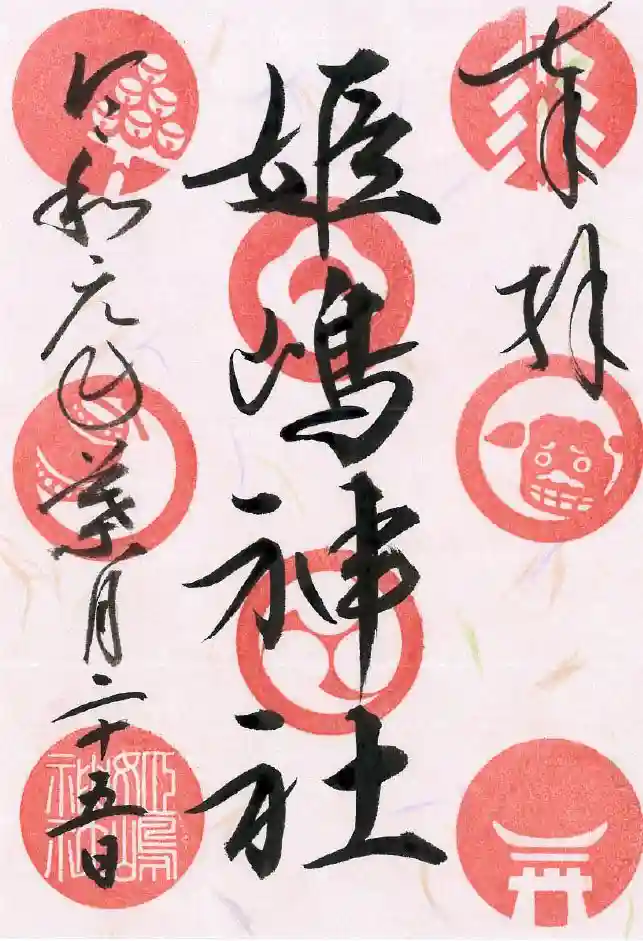 奉拝
姫嶋神社
令和元年葉月二十五日
姫嶋
神社